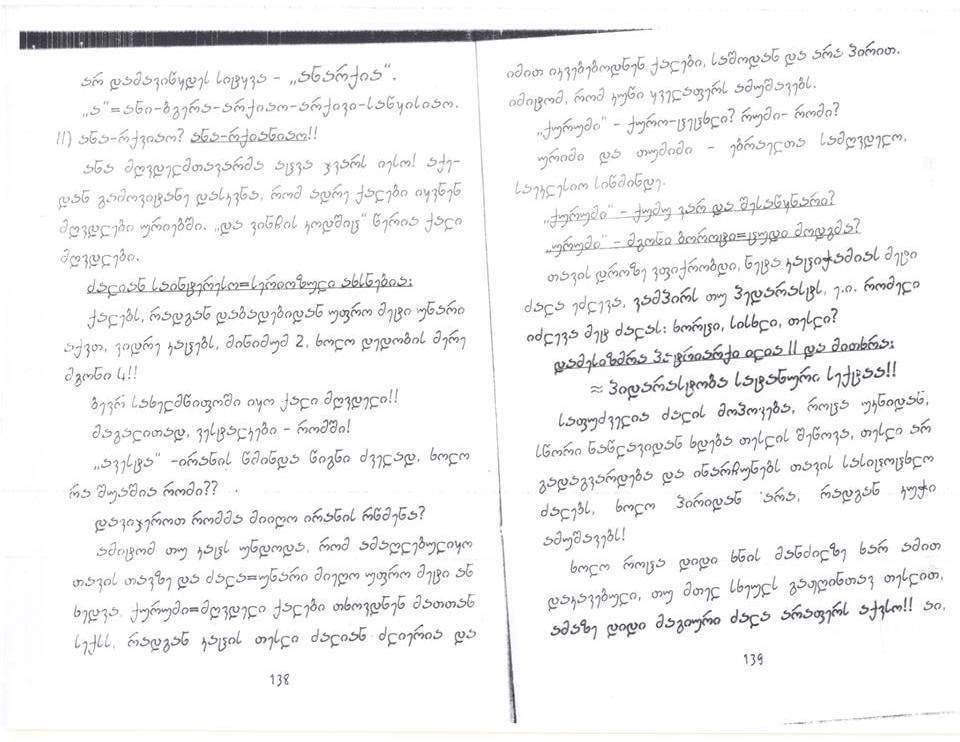 არ დამავიწყდეს სიტყვა - „ანარქია“.
„ა“=ანი-ბგერა-არქიაო-არქივი-საწყისიაო.
II) ანა-რქვიაო? ანა-რქიანიაო!!
ანა მღვდელმთავარმა აცვა ჯვარს იესო! აქე-
დან გამოვიტანე დასკვნა, რომ ადრე ქალები იყვნენ
მღვდლები ურიებში. „და ვინჩის კოდშიც“ წერია ქალი
მღვდლები.
ძალიან საინტერესო=სერიოზული ახსნებია:
ქალებს, რადგან დაბადებიდან უფრო მეტი უნარი
აქვთ, ვიდრე კაცებს, მინიმუმ 2, ხოლო დედობის მერე
მგონი 4!!
ბევრ სახელმწიფოში იყო ქალი მღვდელი!!
მაგალითად, ვესტალკები - რომში!
„ავესტა“ -ირანის წმინდა წიგნი ძველად, ხოლო
რა შუაშია რომი??
დავიჯეროთ რომმა მიიღო ირანის რწმენა?
ამიტომ თუ კაცს უნდოდა, რომ ამაღლებულიყო
თავის თავზე და ძალა=უნარი მიეღო უფრო მეტი ან
ხედვა. ქურუმი=მღვდელი ქალები თხოვდნენ მათთან
სექსს, რადგან კაცის თესლი ძალიან ძლიერია და
138
იმით იკვებებოდნენ ქალები, საშოდან და არა პირით.
იმიტომ, რომ კუჭი ყველაფერს ამუშავებს.
„ქურუმი“ - ქურო-ცეცხლი? რუმი- რომი?
ურიმი და თუმიმი - ებრაელთა სამღვდელო,
საეკლესიო სიწმინდე.
„ქურუმი“ - ქუმუ ვარ და შესაწყნარი?
„ურუმი“ - მგონი ბოროტი=ცუდი მოდგმა?
თავის დროზე ვფიქრობდი, ნეტა კაციჭამიას მეტი
ძალა ეძლევა, ვამპირს თუ პედარასტს, ე.ი. რომელი
იძლევა მეტ ძალას: ხორცი, სისხლი, თესლი?
დამესიზმრა პატრიარქი ილია II და მითხრა:
≈ პიდარასტობა სატანური სექტაა!!
საფუძველია ძალის მოპოვება, როცა უკნიდან,
სწორი ნაწლავიდან ხდება თესლის შეწოვა, თესლი არ
გადაგვარდება და ინარჩუნებს თავის სასიცოცხლო
ძალებს, ხოლო პირიდან არა, რადგან კუჭი
ამუშავებს!
ხოლო როცა დიდი ხნის მანძილზე ხარ ამით
დაკავებული, თუ მთელ სხეულს გაჟღინთავ თესლით,
ამაზე დიდი მაგიური ძალა არაფერს აქვსო!! აი,
139